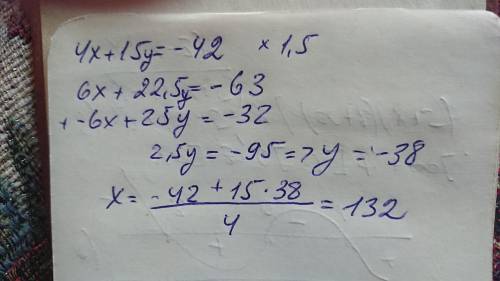 4x+15y=-42 × 1,5
6x+22,5y=-63
+-6x+25y=-32
2,5y=-95=>y=-38
x=\frac{-42+15·38}{4}=132